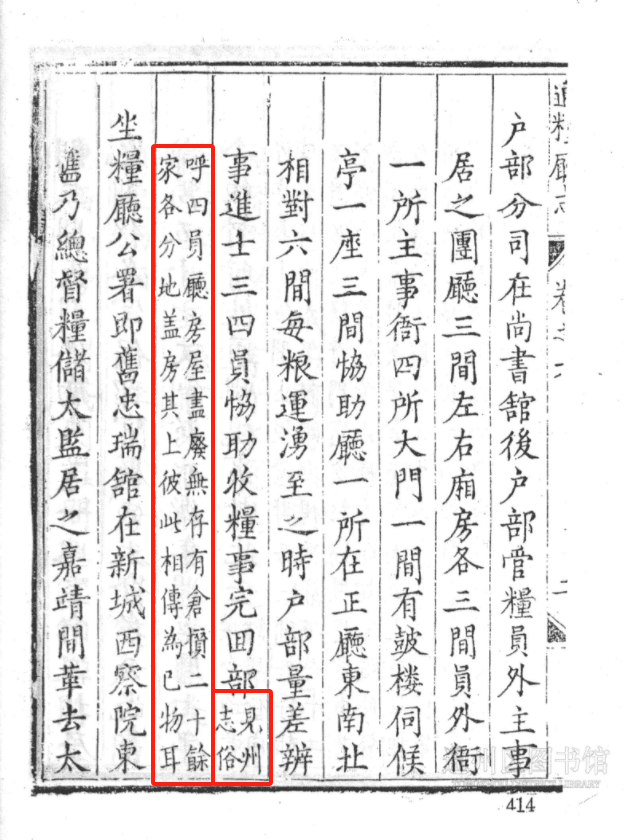 通糧廳志 卷之
户部分司在尚書舘後户部管糧員外主事
居之團廳三間左右廂房各三間員外衙
一所主事衙四所大門一間有鼓楼伺候
亭一座三間恊助廳一所在正廳東南北
相對六間每粮運湧至之時户部量差辨
事進士三四員恊助收糧事完回部
見州
志俗
呼四員廳房屋盡廢無存有倉攢二十餘
家各分地盖房其上彼此相傳為已物耳
坐糧廳公署即舊忠瑞舘在新城西察院東
舊乃總督糧儲太監居之嘉靖間革去太
414
州图书馆
LIBRARY